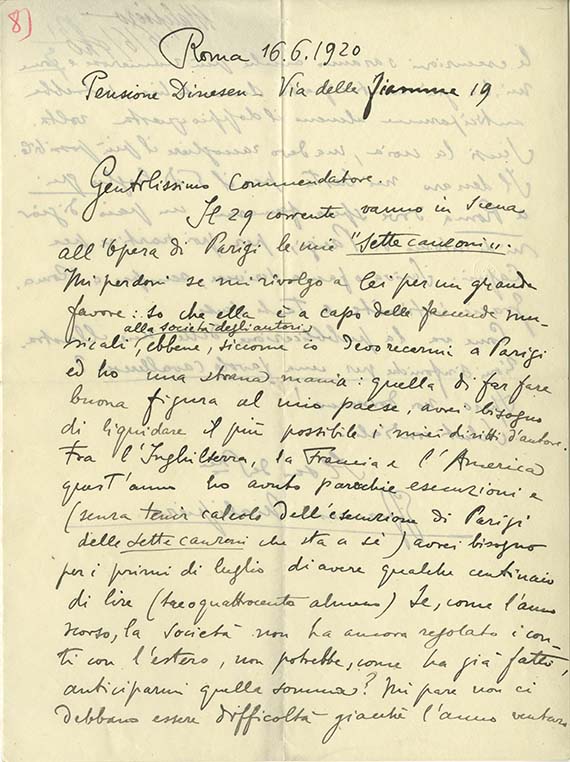 8)
Roma 16.6.1920
Pensione Dinesen Via delle Fiamme 19
Gentilissimo Commendatore.
Il 29 corrente vanno in scena
all'Opera di Parigi le mie "Sette canzoni".
Mi perdoni se mi rivolgo a lei per un grande
favore: so che ella è a capo delle faccende mu-
alla società degli autori,
sicali, ebbene, siccome io devo recarmi a Parigi
ed ho una strana mania: quella di far fare
buona figura al mio paese, avrei bisogno
di liquidare il più possibile i miei diritti d'autore.
Fra l'Inghilterra, la Francia e l'America
quest'anno ho avuto parecchie esecuzioni e
(senza tener calcolo dell'esecuzione di Parigi
delle Sette canzoni che sta a sè) avrei bisogno
per i primi di luglio di avere qualche centinaio
di lire (treoquattrocento almeno) Se, come l'anno
scorso, la società non ha ancora regolato i con-
ti con l'estero, non potrebbe, come ha già fatto,
anticiparmi quella somma? Mi pare non ci
debbano essere difficoltà giacchè l'anno venturo